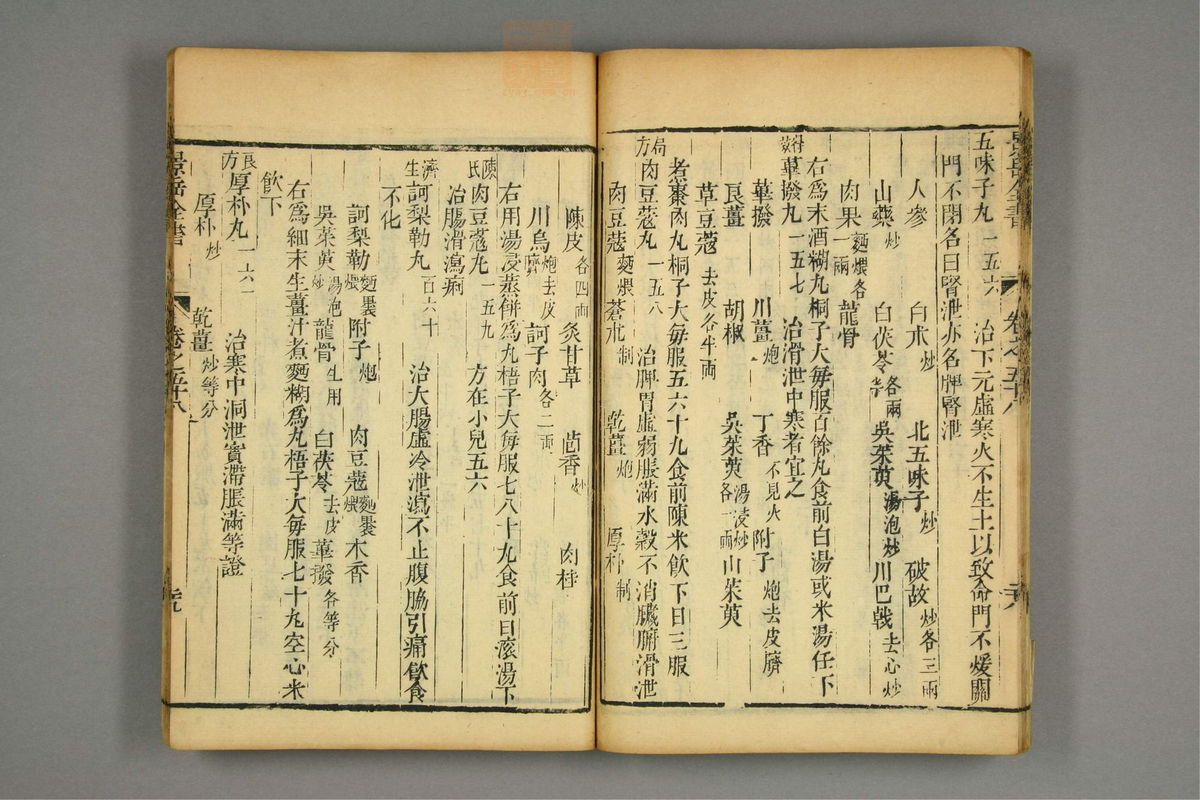 景岳全書
卷之五十八
五味子丸一五六 治下元虛寒火不生土以致命門不煖關
門不閉名曰腎泄亦名脾腎泄
人參 白朮炒 北五味子炒 破故炒各三兩
山藥炒 白茯苓各兩半 吳茱萸湯泡炒 川巴戟去心炒
肉果麵煨各一兩 龍骨
右爲末酒糊丸桐子大每服百餘丸食前白湯或米湯任下
蓽撥丸一五七 治滑泄中寒者宜之
蓽撥 川薑炮 丁香不見火 附子炮去皮臍
良薑 胡椒 吳茱萸湯浸炒各一兩 山茱萸
草豆蔻去皮各半兩
煮棗肉丸桐子大每服五六十丸食前陳米飲下日三服
局方肉豆蔻丸一五八 治脾胃虛弱脹滿水穀不消臟腑滑泄
肉豆蔻麵煨 蒼朮制 乾薑炮 厚朴制
陳皮各四兩 炙甘草 茴香炒 肉桂
川烏炮去皮臍 訶子肉各二兩
右用湯浸蒸餅爲丸梧子大每服七八十丸食前白滚湯下
陳氏肉豆蔻丸一五九 方在小兒五六
治腸滑瀉痢
濟生訶梨勒丸百六十 治大腸虛冷泄瀉不止腹脇引痛飲食
不化
訶梨勒麵裹煨 附子炮 肉豆蔻麵裹煨 木香
吳茱萸湯泡炒 龍骨生用 白茯苓去皮 蓽撥各等分
右爲細末生薑汁煮麵糊爲丸梧子大每服七十丸空心米
飲下
良方厚朴丸一六一 治寒中洞泄實滯脹滿等證
厚朴炒 乾薑炒等分
景岳全書
卷之五十八